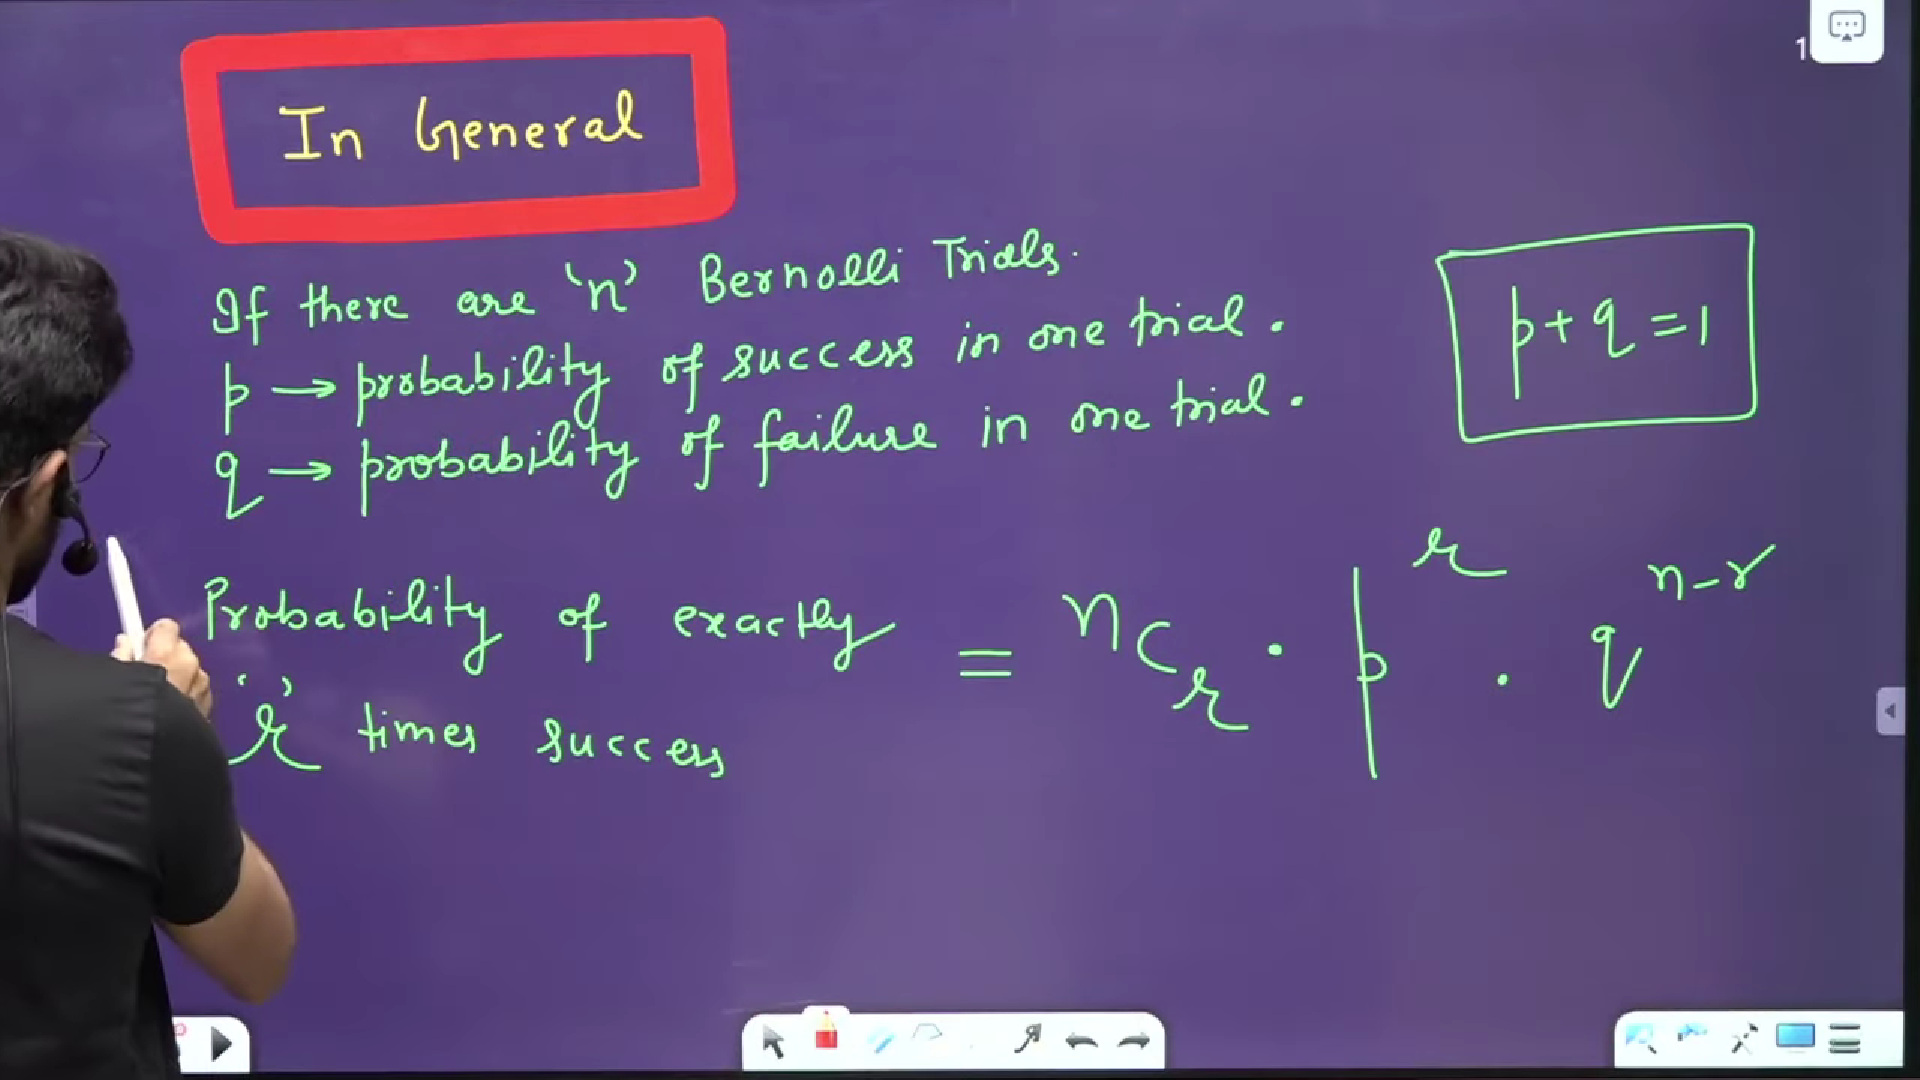 1
In General
If there are 'n' Bernolli Trials.
p → probability of success in one trial.
q → probability of failure in one trial.
p + q = 1
Probability of exactly 'r' times success = nCr · p^r · q^n-r